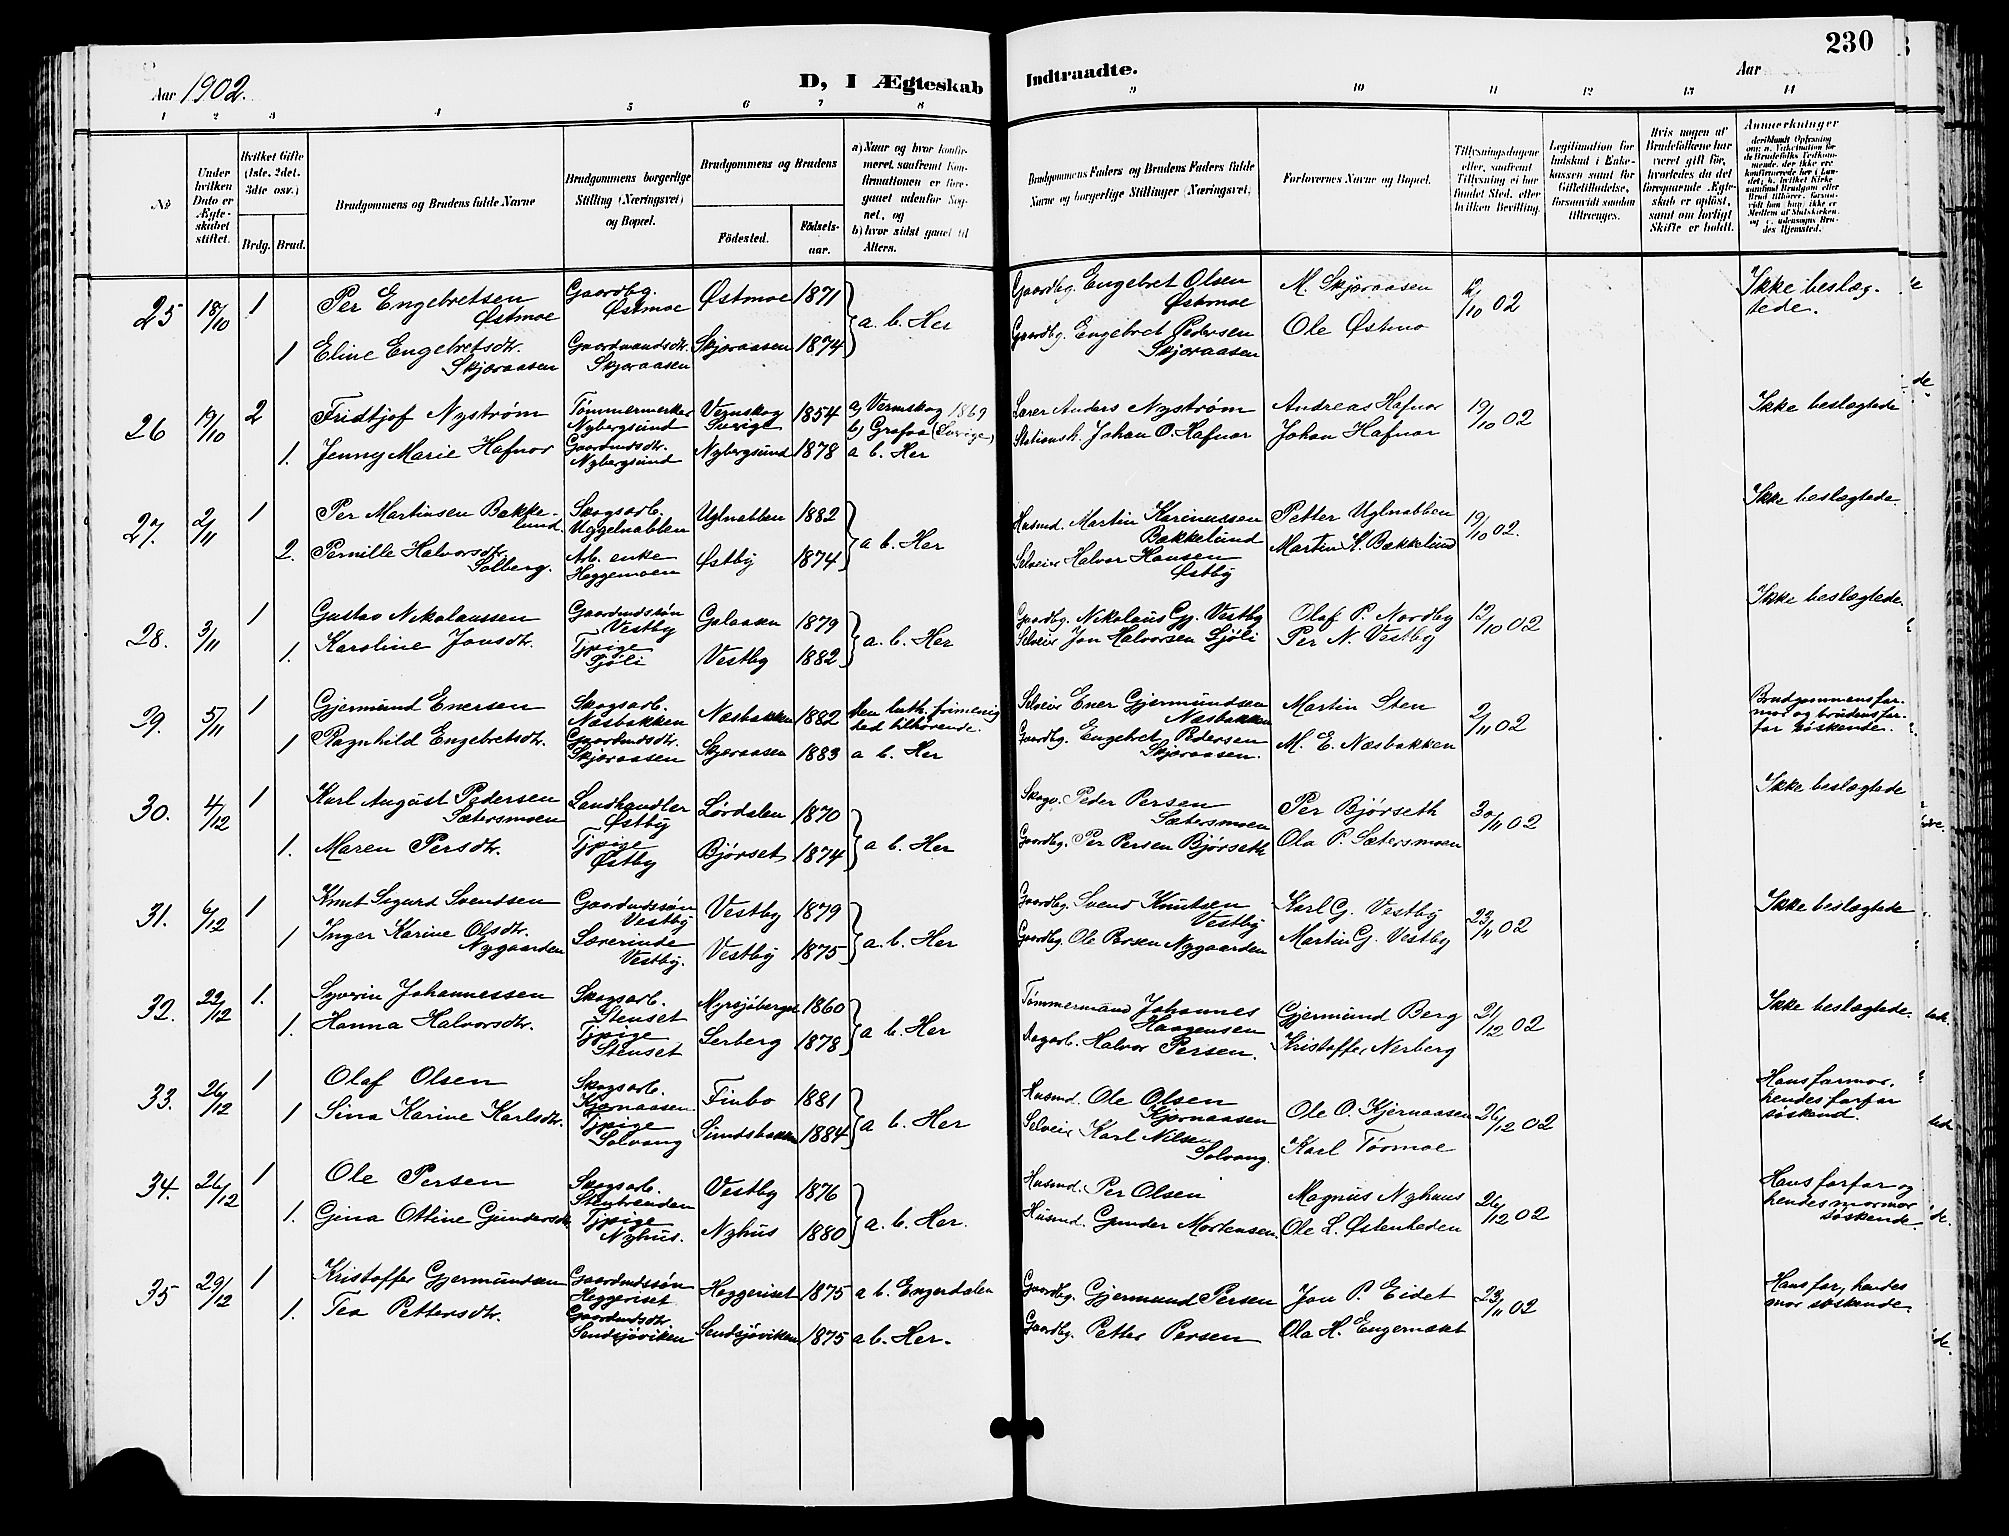 230
Aar 1902.
D, I Ægteskab Indtraadte.
Aar
1 2 3 4 5 6 7 8 9 10 11 12 13 14
№
Under hvilken Dato er Ægteskabet stiftet.
Hvilket Gifte (1ste, 2det, 3die osv.)
Brdg. Brud.
Brudgommens og Brudens fulde Navne
Brudgommens borgerlige Stilling (Næringsvei) og Bopæl.
Brudgommens og Brudens
Fødested. Fødselsaar.
a) Naar og hvor konfirmeret, saafremt Konfirmationen er foregaaet udenfor Sognet, og b) hvor sidst gaaet til Alters.
Brudgommens Faders og Brudens Faders fulde Navne og borgerlige Stillinger (Næringsvei)
Forlovernes Navne og Bopæl.
Tillysningsdagene eller, saafremt Tillysning ei har fundet Sted, efter hvilken Bevilling.
Legitimation for Indskud i Enkekassen samt for Giftetilladelse, forsaavidt saadan tiltrænges.
Hvis nogen af Brudefolkene har været gift før, hvorledes da det foregaaende Ægteskab er opløst, samt om lovligt Skifte er holdt.
Anmerkninger
25 18/10 1 Per Engebretsen Østmoe Gaardbg. Østmoe Østmoe 1871 a. b. Her Gaardbg. Engebret Olsen Østmoe M. Skjæraasen 12/10 02 Ikke beslægtede.
1 Eline Engebretsdtr. Skjæraasen Gaardmandsdtr. Skjæraasen Skjæraasen 1874 Gaardbg. Engebret Pedersen Skjæraasen Ole Østmo
26 19/10 2 Fridtjof Nystrøm Tømmermerker Nybergsund Vermskog Sverige 1854 a) Vermskog 1869 b) Grafaa (Sverige) Lærer Anders Nystrøm Andreas Hafnor 19/10 02 Ikke beslægtede
1. Jenny Marie Hafnor Gaardmdsdtr. Nybergsund Nybergsund 1878 a b. Her Stationsh. Johan O. Hafnor Johan Hafnor
27. 2/11 1 Per Martinsen Bækkelund Skogsarb. Uggelnabben Uglnabben 1882 a b. Her Husmd. Martin Karinussen Bækkelund Petter Uglnabben 19/10 02. Ikke beslægtede.
2. Pernille Halvorsdtr. Solberg. Arb. enke Heggemoen Østby 1874 Selveier Halvor Hansen Østby Martin K. Bækkelund
28. 3/11 1 Gustav Nikolaussen Gaardmdssøn Vestby Galaasen 1879 a. b. Her Gaardbg. Nikolaus Gj. Vestby Olaf P. Nordby 12/10 02 Ikke beslægtede.
1. Karoline Jonsdtr. Tjpige Sjøli Vestby 1882 Selveier Jon Halvorsen Sjøli Per N. Vestby
29. 5/11 1 Gjermund Enersen Skogsarb. Næsbakken Næsbakken 1882 den luth. frimenighed tilhørende. Selveier Ener Gjermundsen Næsbakken Martin Sten 2/11 02 Brudgommens farmor og brudens farfar søskende.
1 Ragnhild Engebretsdtr. Gaardmdsdtr. Skjæraasen Skjæraasen 1883 a b. Her Gaardbg. Engebret Pedersen Skjæraasen. M. E. Næsbakken
30. 4/12 1 Karl August Pedersen Sætersmoen Landhandler Østby Lørdalen 1870 a b. Her Skogv. Peder Persen Sætersmoen Per Bjørseth 30/11 02 Ikke beslægtede
1. Maren Persdtr. Tjpige Østby Bjørset 1874 Gaardbg. Per Persen Bjørseth Ola P. Sætersmoen
31. 6/12 1 Knut Sigurd Svendsen Gaardmdssøn Vestby Vestby 1879 a. b. Her Gaardbg. Svend Knutsen Vestby Karl G. Vestby 23/11 02 Ikke beslægtede
1 Inger Karine Olsdtr. Nygaarden Lærerinde Vestby. Vestby 1875 Gaardbg. Ole Persen Nygaarden Martin G. Vestby
32. 22/12 1. Syverin Johannessen Skogsarb. Stenset Myrsjøberget 1860 a b. Her Tømmermand Johannes Haagensen Gjermund Berg 21/12 02 Ikke beslægtede.
1. Hanna Halvorsdtr. Tjpige Stenset Lerberg 1878 Dagarb. Halvor Persen. Kristoffer Nerberg
33. 26/12 1 Olaf Olsen Skogsarb. Kjernaasen Finbo 1881 a b. Her Husmd. Ole Olsen Kjernaasen Ole O. Kjernaasen 26/12 02 Hans farmor, hendes farfar søskend.
1 Sina Karine Karlsdtr. Tjpige Solvang Sundsbakken 1884 Selveier Karl Nilsen Solvang. Karl Tørmoe
34. 26/12 1 Ole Persen Skogsarb. Vestby 1876 a. b. Her. Husmd. Per Olsen Magnus Nyhuus 26/12 02 Hans farfar og hendes mormor søskende.
1. Gina Otline Gundersdtr. Tjpige Nyhus. Nyhus 1880 Husmd. Gunder Mortensen. Ole L. Østenheden
35 29/12 1 Kristoffer Gjermundsen Gaardmdssøn Heggeriset Heggeriset 1875 a b. Engerdalen Gaardbg. Gjermund Persen Jon P. Eidet 23/11 02 Hans far, hendes mor søskende.
1. Tea Pettersdtr. Gaardmdsdtr. Sendsjøviken Sendsjøviken 1875 a b. Her. Gaardbg. Petter Persen Ola H. Engernæset